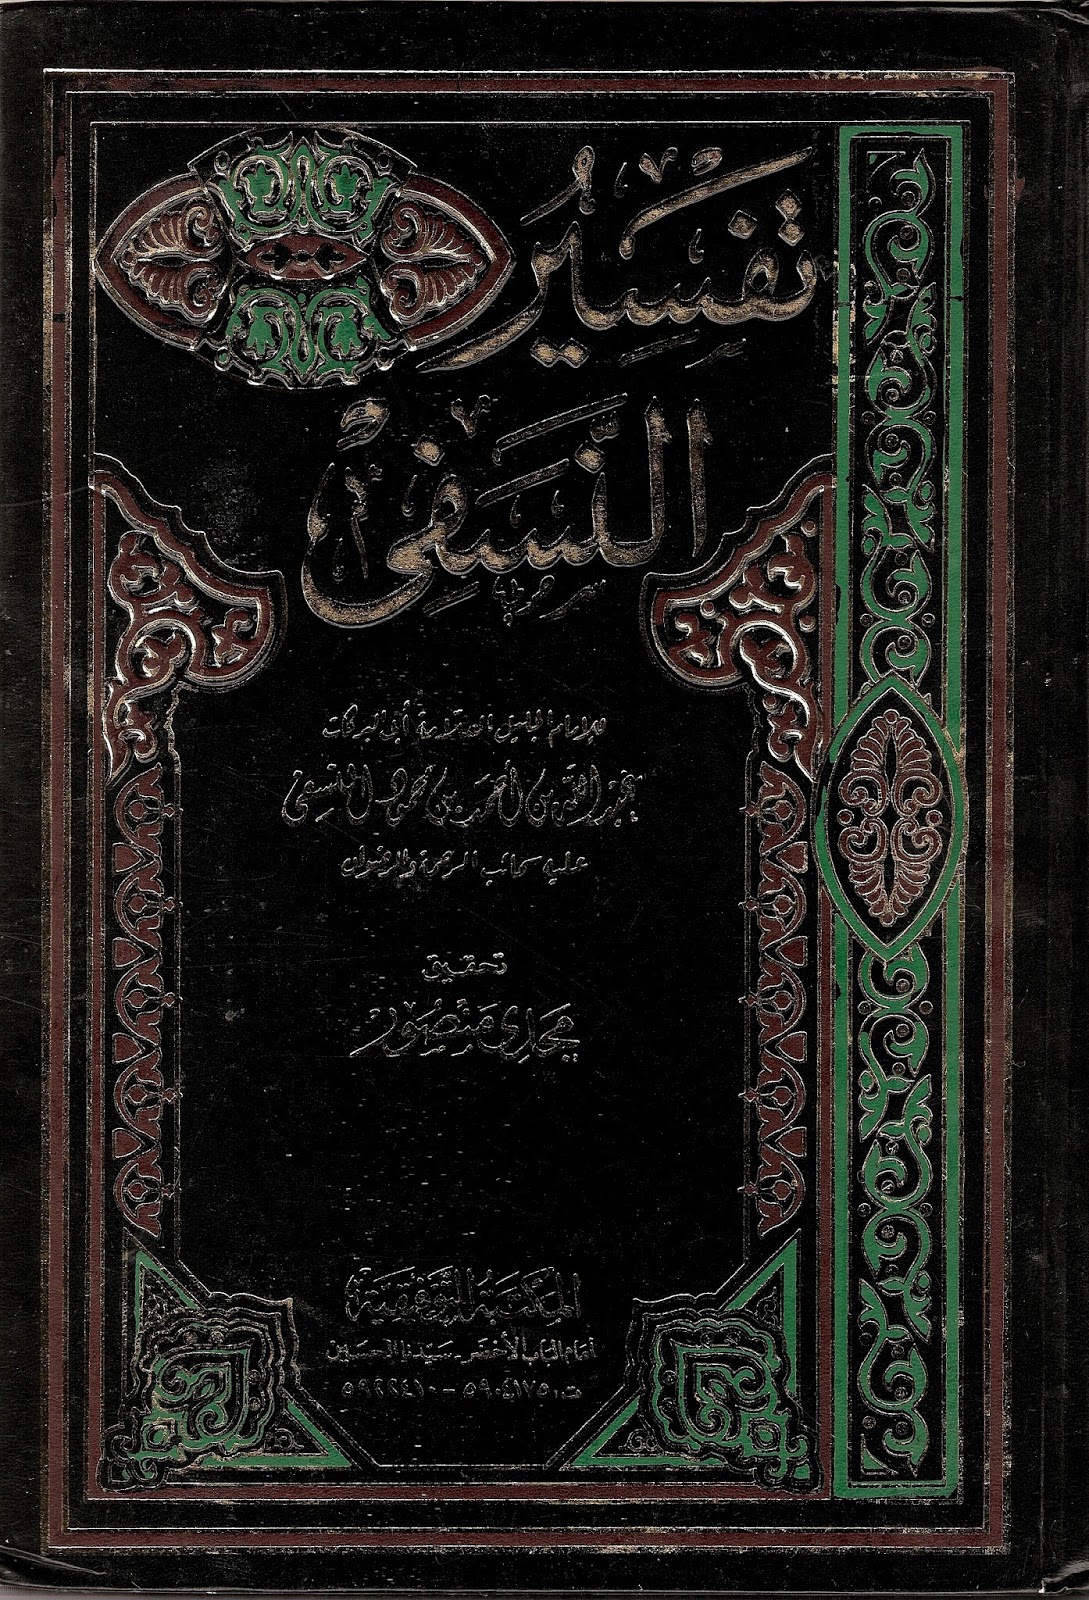 تفسير
النسفي
للإمام الجليل العلامة أبي البركات
عبد الله بن أحمد بن محمود النسفي
عليه سحائب الرحمة والرضوان
تحقيق
مجدي منصور
المكتبة التوفيقية
أمام الباب الأخضر - سيدنا الحسين
ت: ٥٩٠٤١٧٥ - ٥٩٢٢٤١٠